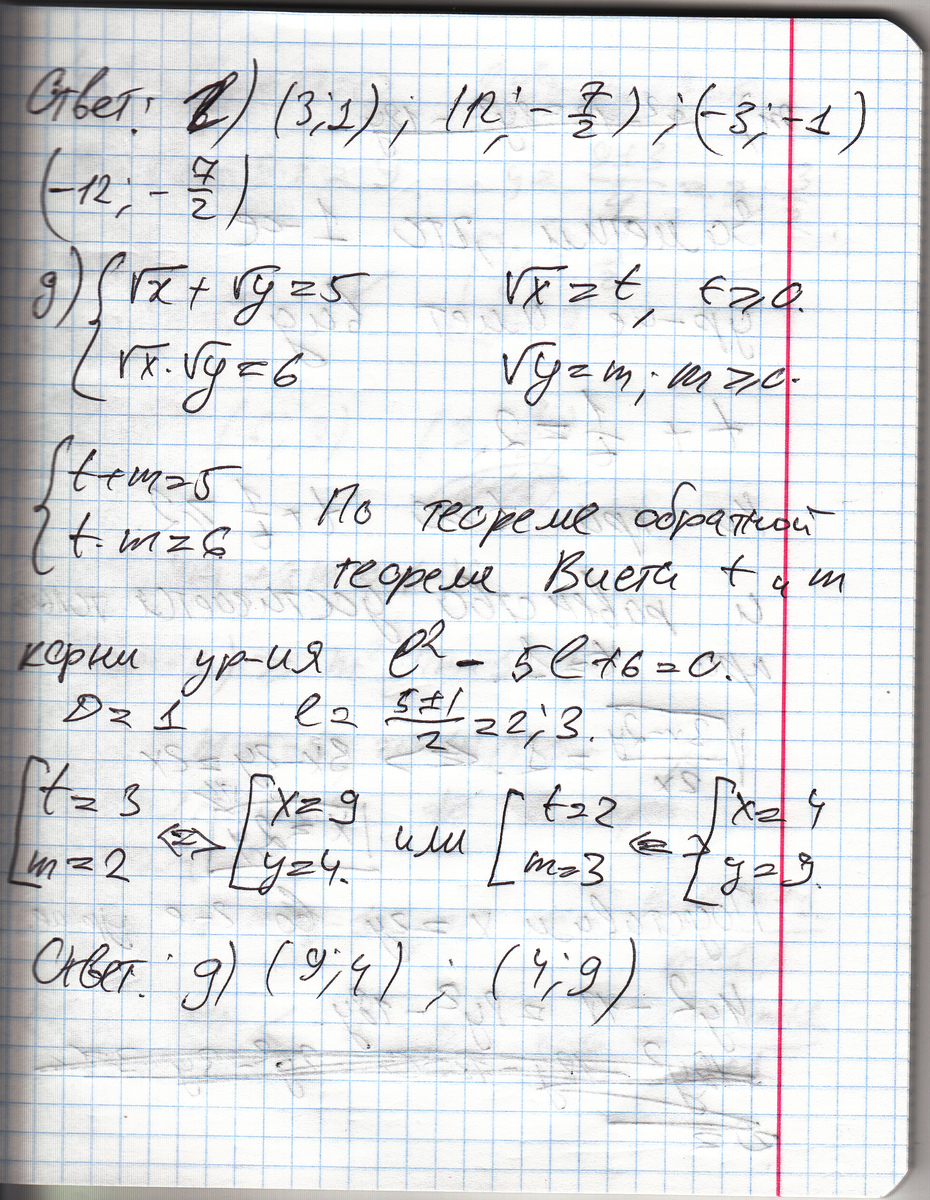 Ответ: в) (3;1) ; (12; -7/2) ; (-3; -1)
(-12; -7/2)
д) { √x + √y = 5      √x = t, t ≥ 0.
√x · √y = 6      √y = m; m ≥ 0.
{ t + m = 5
t · m = 6      По теореме обратной
теореме Виета t и m
корни ур-ия l² - 5l + 6 = 0.
D = 1      l = (5±1)/2 = 2; 3.
[ t = 3 <=> [ x = 9 или [ t = 2 <=> [ x = 4
m = 2      y = 4.      m = 3      y = 9.
Ответ: д) (9;4) ; (4;9)